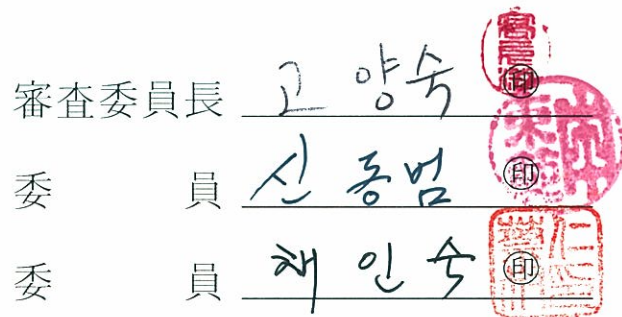 審査委員長 고 양숙 ㊞
委 員 신 동범 ㊞
委 員 채 인 숙 ㊞